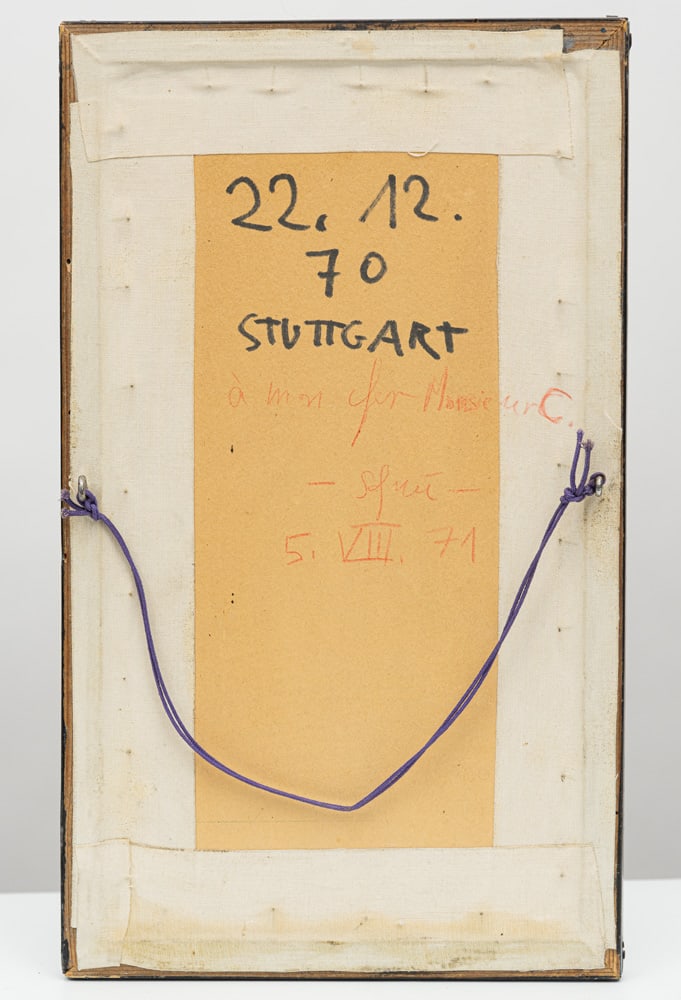 22. 12.
70
STUTTGART
à mon cher Monsieur C.
5. VIII. 71